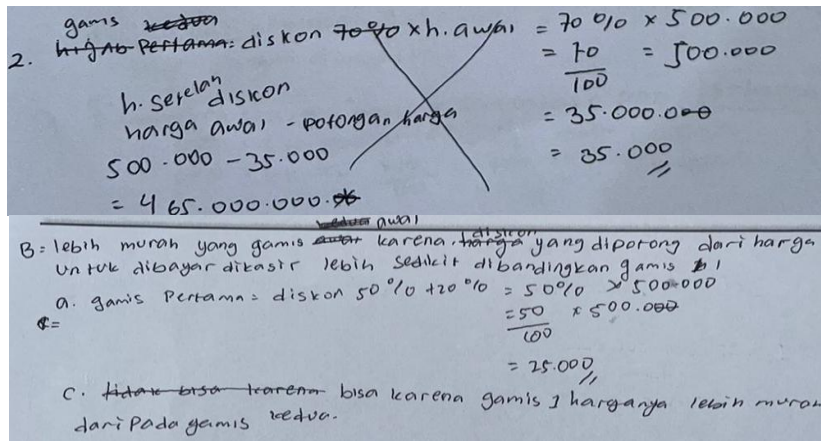 gamis kedua
2. harga Pertama: diskon 70% x h. awal = 70% x 500.000
= 70/100 = 500.000
= 35.000.000
= 35.000
h. setelah diskon
harga awal - potongan harga
500.000 - 35.000
= 465.000.000.
B = lebih murah yang gamis awal karena diskon yang dipotong dari harga
untuk dibayar dikasir lebih sedikit dibandingkan gamis 1
a. gamis Pertama = diskon 50% + 20% = 50% x 500.000
= 50/100 x 500.000
= 25.000
c. tidak bisa karena bisa karena gamis 1 harganya lebih murah
dari Pada gamis kedua.